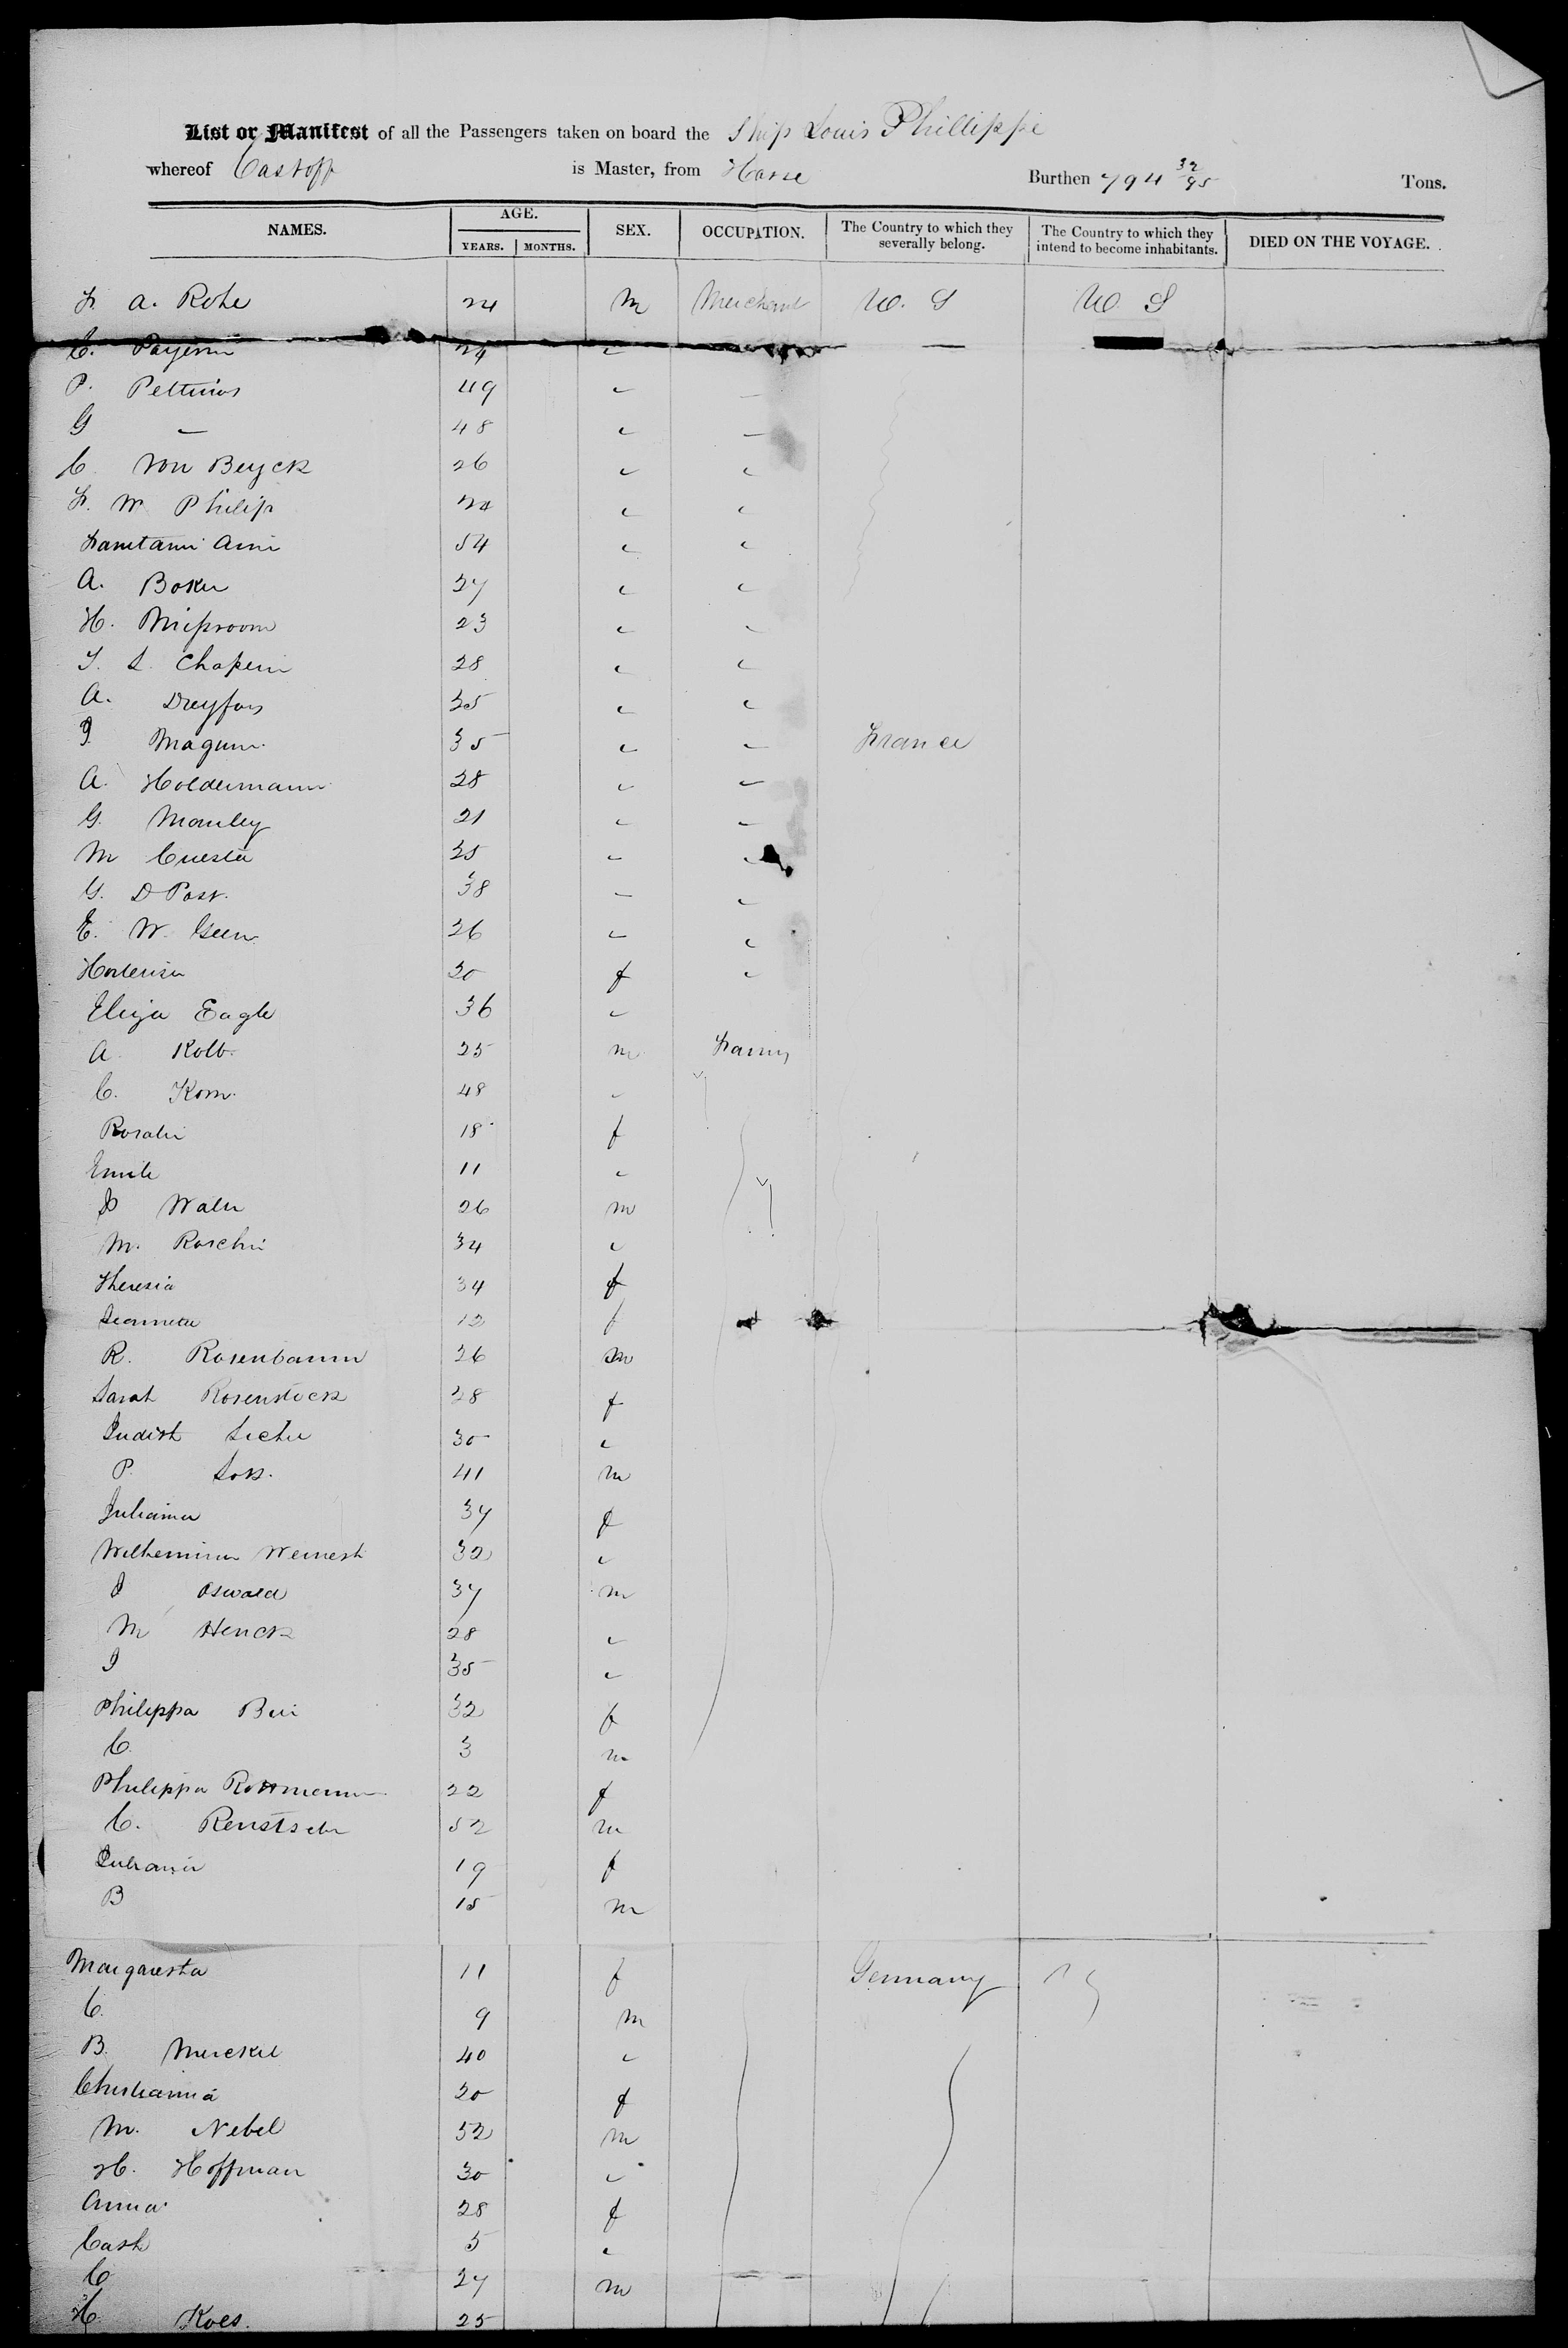 List or Manifest of all the Passengers taken on board the Ship Louis Phillippe
whereof Castoff is Master, from Havre Burthen 794 32/95 Tons.
NAMES. AGE. YEARS. MONTHS. SEX. OCCUPATION. The Country to which they severally belong. The Country to which they intend to become inhabitants. DIED ON THE VOYAGE.
F. A. Rohe 24 M Merchant U. S U. S
C. 24 "
P. Pettinos 49 "
G — 48 " —
C. Von Beyck 26 " "
F. W. Philip 24 " "
54 " "
A. Boker 27 " "
H. 23 " "
T. S. Chapein 28 " "
A. Dreyfous 35 " "
J. Magum 35 " " France
A. Holdermann 28 " "
G. Manley 21 " "
M Cuesta 25 " "
G. D Post. 38 " "
E. W. Geen 26 " "
30 f "
Eliza Eagle 36 "
A. Kolb. 25 m
C. Korn. 48 "
Rosalie 18 f
Emile 11 "
Walter 26 m
M. Roschi 34 "
Theresia 34 f
Jeannette 12 f
R. Rosenbaum 26 m
Sarah Rosenstock 28 f
Judith 30 "
P. 41 m
Julianna 37 f
Wilhemina 32 "
J Oswald 37 m
M Henck 28 "
J 35 "
Philippa 32 f
C. 3 m
Philippa Rottmann 22 f
C. 52 m
19 f
B 15 m
Margaresta 11 f Germany
C. 9 m
B. Merckel 40 "
Christianna 20 f
M. Nebel 52 m
H. Hoffman 30 "
Anna 28 f
Cath 5 "
C 27 m
Koes. 25